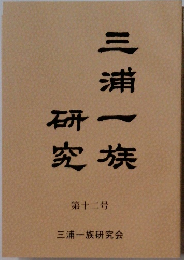 三浦一族
研究
第十二号
三浦一族研究会